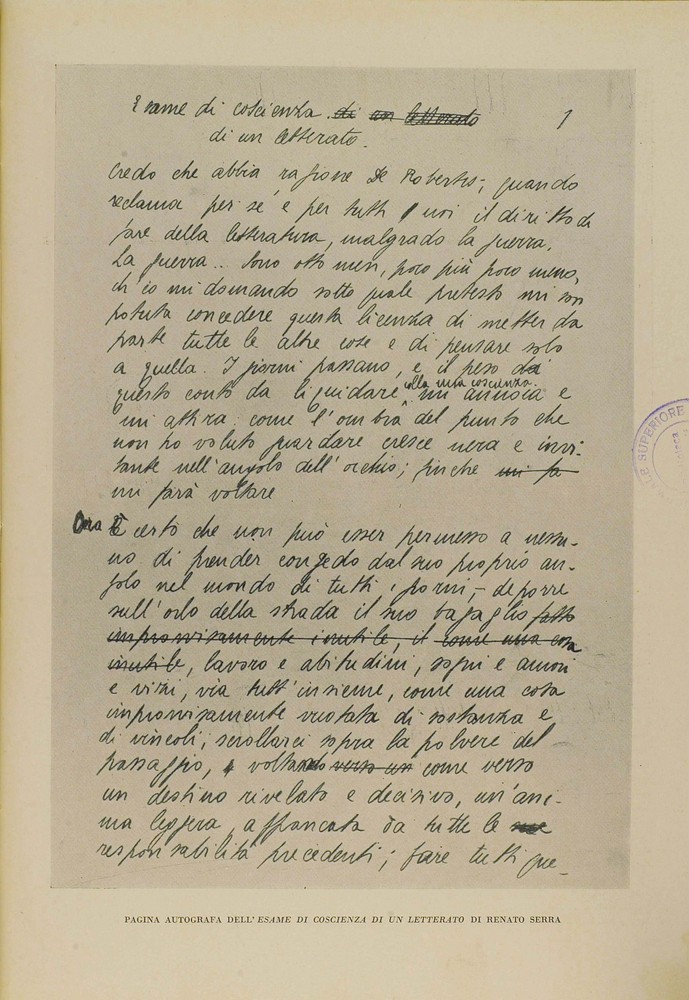 Esame di coscienza di un letterato 1
di un letterato.
Credo che abbia ragione De Robertis, quando
reclama per sé e per tutti noi il diritto di
fare della letteratura, malgrado la guerra.
La guerra... Sono otto mesi, poco più poco meno,
ch'io mi domando sotto quale pretesto mi son
potuta concedere questa licenza di metter da
parte tutte le altre cose e di pensare solo
a quella. I giorni passano, e il peso di
colla mia coscienza
questo conto da liquidare mi annoia e
mi attira: come l'ombra del punto che
non ho voluto guardare cresce nera e invi-
tante nell'angolo dell'occhio; finché mi fa
mi farà voltare
Ora è certo che non può esser permesso a nessu-
no di prender congedo dal suo proprio an-
golo nel mondo di tutti i giorni, - deporre
sull'orlo della strada il suo bagaglio fatto
improvvisamente inutile, il come una cosa
inutile, lavoro e abitudini, sogni e amori
e vizi, via tutt'insieme, come una cosa
improvvisamente vuotata di sostanza e
di vincoli; scrollarci sopra la polvere del
passaggio, voltando verso un come verso
un destino rivelato e decisivo, un'ani-
ma leggera, affrancata da tutte le
responsabilità precedenti; fare tutti que-
PAGINA AUTOGRAFA DELL'ESAME DI COSCIENZA DI UN LETTERATO DI RENATO SERRA
SUPERIORE